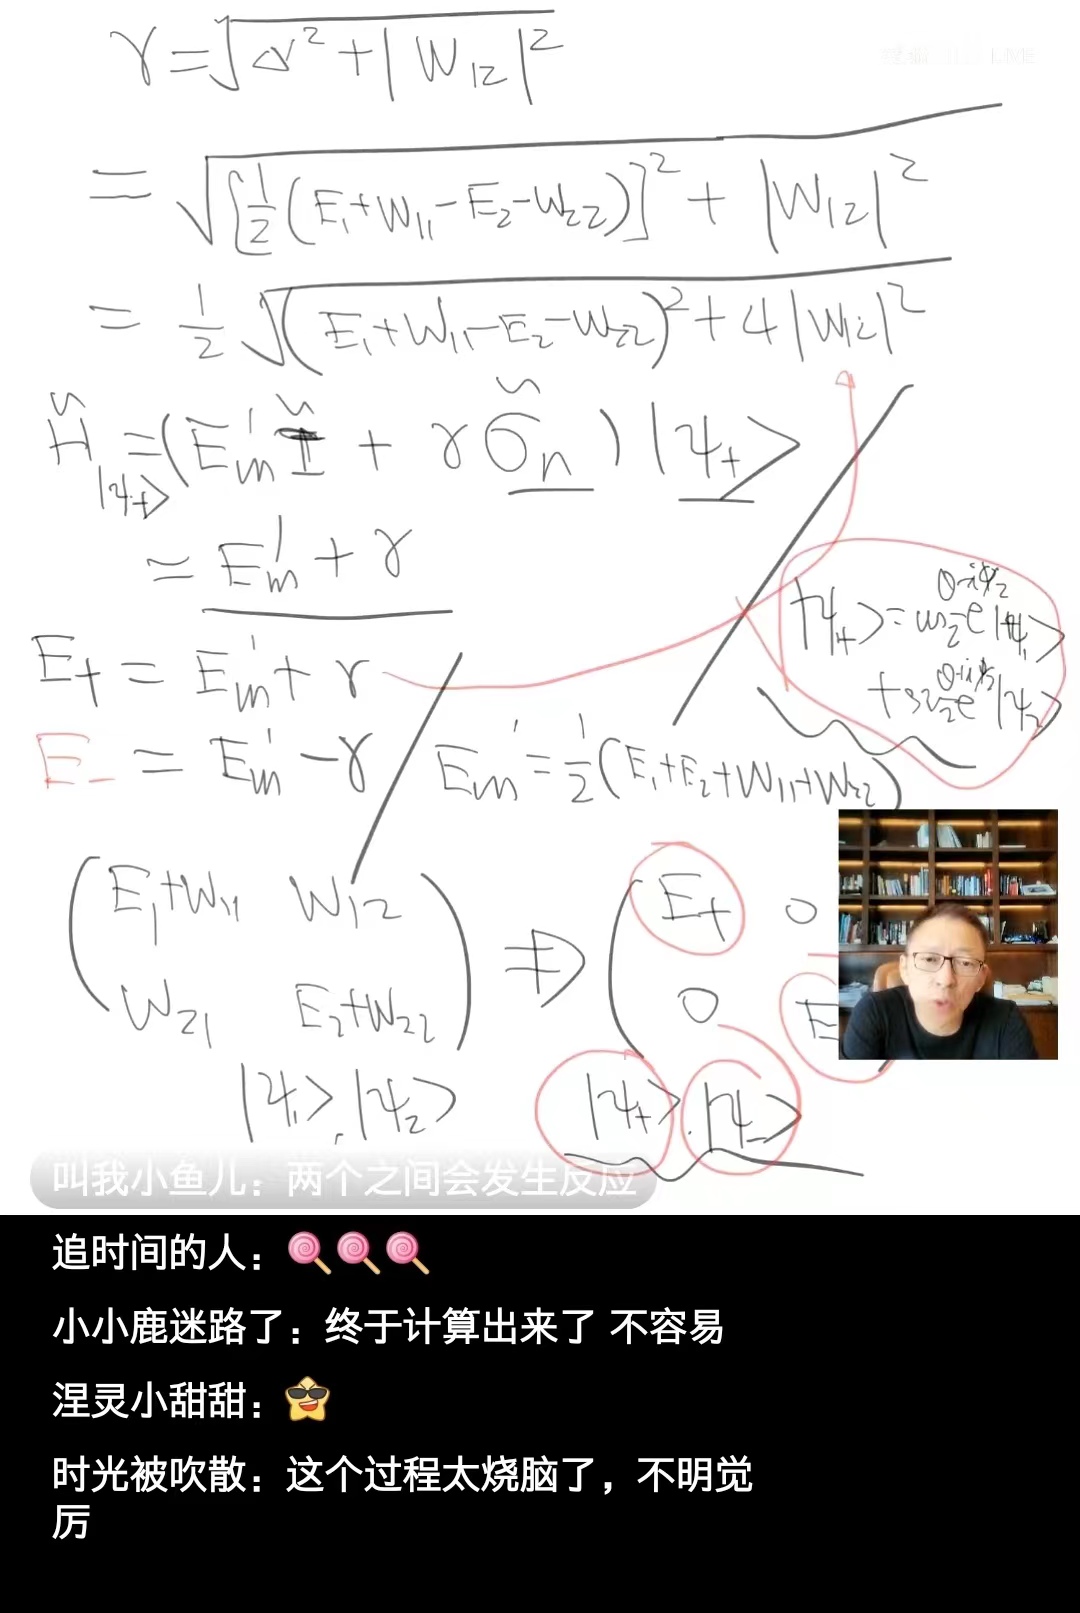 γ = √(Δ² + |W₁₂|²)
= √([½(E₁+W₁₁-E₂-W₂₂)]² + |W₁₂|²)
= ½ √((E₁+W₁₁-E₂-W₂₂)² + 4|W₁₂|²)
H |ψ₊> = (Em' I + γσn) |ψ₊>
= Em' + γ
|ψ₊> = cos θ/2 e^(-iφ/2) |ψ₁>
E₊ = Em' + γ
+ sin θ/2 |ψ₂>
E₋ = Em' - γ
Em' = ½(E₁+E₂+W₁₁+W₂₂)
E₁+W₁₁ W₁₂
W₂₁ E₂+W₂₂
⇒
E₊ 0
0 E
|ψ₁>, |ψ₂>
|ψ₊>, |ψ₋>
叫我小鱼儿：两个之间会发生反应
追时间的人：🍭🍭🍭
小小鹿迷路了：终于计算出来了 不容易
涅灵小甜甜：
时光被吹散：这个过程太烧脑了，不明觉
厉